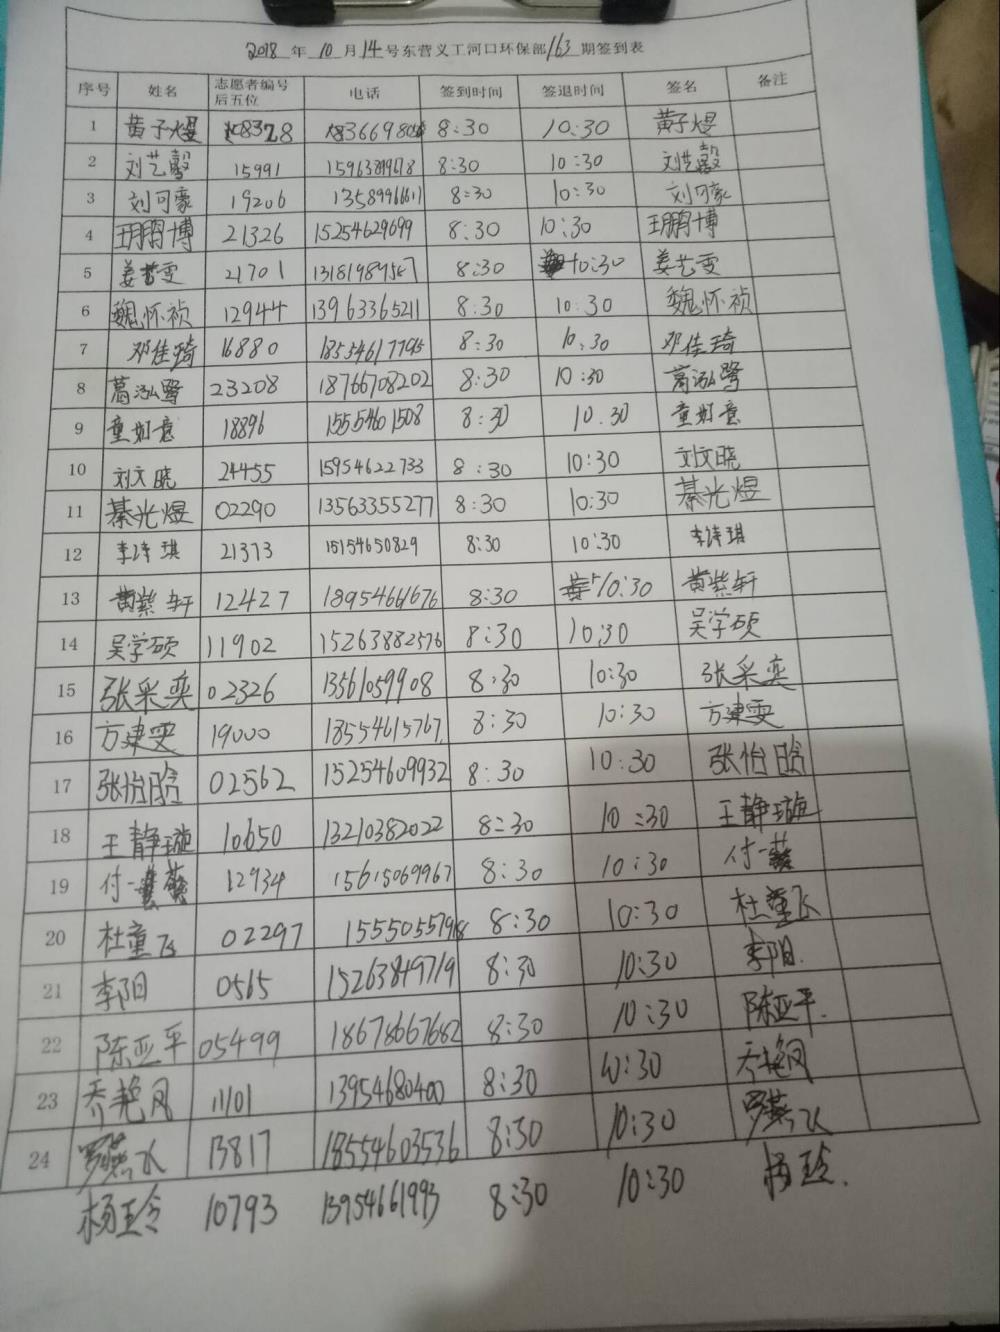 2018 年 10 月 14 号东营义工河口环保部 163 期签到表
序号 姓名 志愿者编号后五位 电话 签到时间 签退时间 签名 备注
1 黄子煜 08328 8:30 10:30 黄子煜
2 刘艺馨 15991 8:30 10:30 刘艺馨
3 刘可豪 19206 13589966611 8:30 10:30 刘可豪
4 王鹏博 21326 15254629699 8:30 10:30 王鹏博
5 姜艺雯 21701 13181989567 8:30 10:30 姜艺雯
6 魏怀祯 12944 13963365211 8:30 10:30 魏怀祯
7 邓佳琦 16880 18554617795 8:30 10:30 邓佳琦
8 葛泓鹭 23208 18766708202 8:30 10:30 葛泓鹭
9 童如意 18896 15554601508 8:30 10.30 童如意
10 刘文晓 24455 15954622733 8:30 10:30 刘文晓
11 綦光煜 02290 13563355277 8:30 10:30 綦光煜
12 李诗琪 21373 15154650829 8:30 10:30 李诗琪
13 黄紫轩 12427 18954661676 8:30 10:30 黄紫轩
14 吴学硕 11902 15263882576 8:30 10:30 吴学硕
15 张采奕 02326 13561059908 8:30 10:30 张采奕
16 方建雯 19000 18554615767 8:30 10:30 方建雯
17 张怡晗 02562 15254609932 8:30 10:30 张怡晗
18 王静璇 10650 13210382022 8:30 10:30 王静璇
19 付一 12934 15615069967 8:30 10:30 付一
20 杜童飞 02297 8:30 10:30 杜童飞
21 李阳 0565 15263849719 8:30 10:30 李阳.
22 陈亚平 05499 18678667682 8:30 10:30 陈亚平.
23 乔艳风 11101 13954680400 8:30 10:30 乔艳风
24 罗燕飞 13817 18554603536 8:30 10:30 罗燕飞
杨玉玲 10793 13954661993 8:30 10:30 杨玉玲.